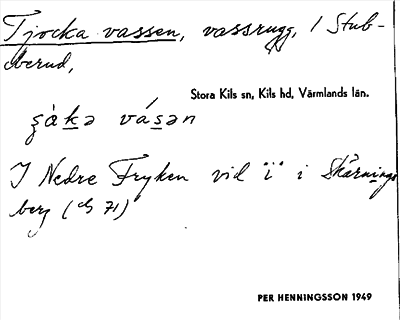 Tjocka vassen, vassrugg, / Stub-
berud,
Stora Kils sn, Kils hd, Värmlands län.
I Nedre Fryken vid "i" i Skårnings
berg (71)
PER HENNINGSSON 1949